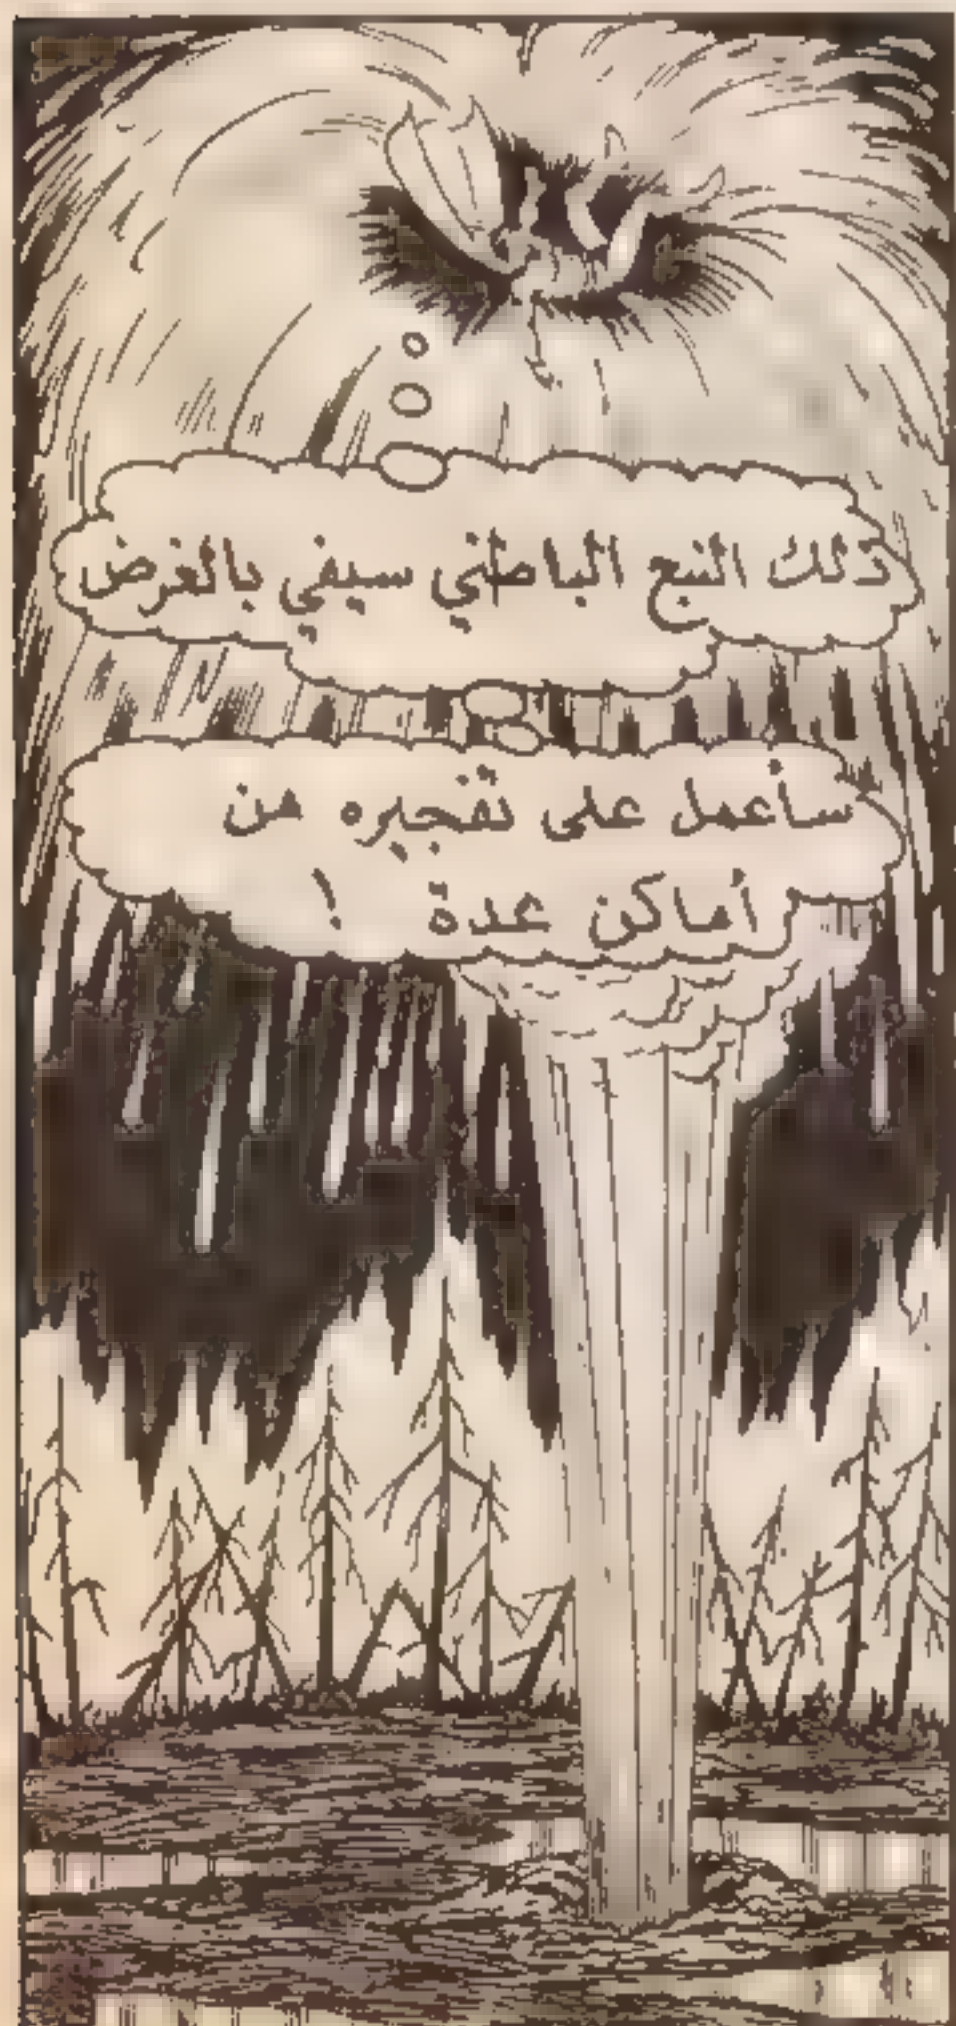 ذلك النبع الباطني سيفي بالغرض
سأعمل على تفجيره من
أماكن عدة !